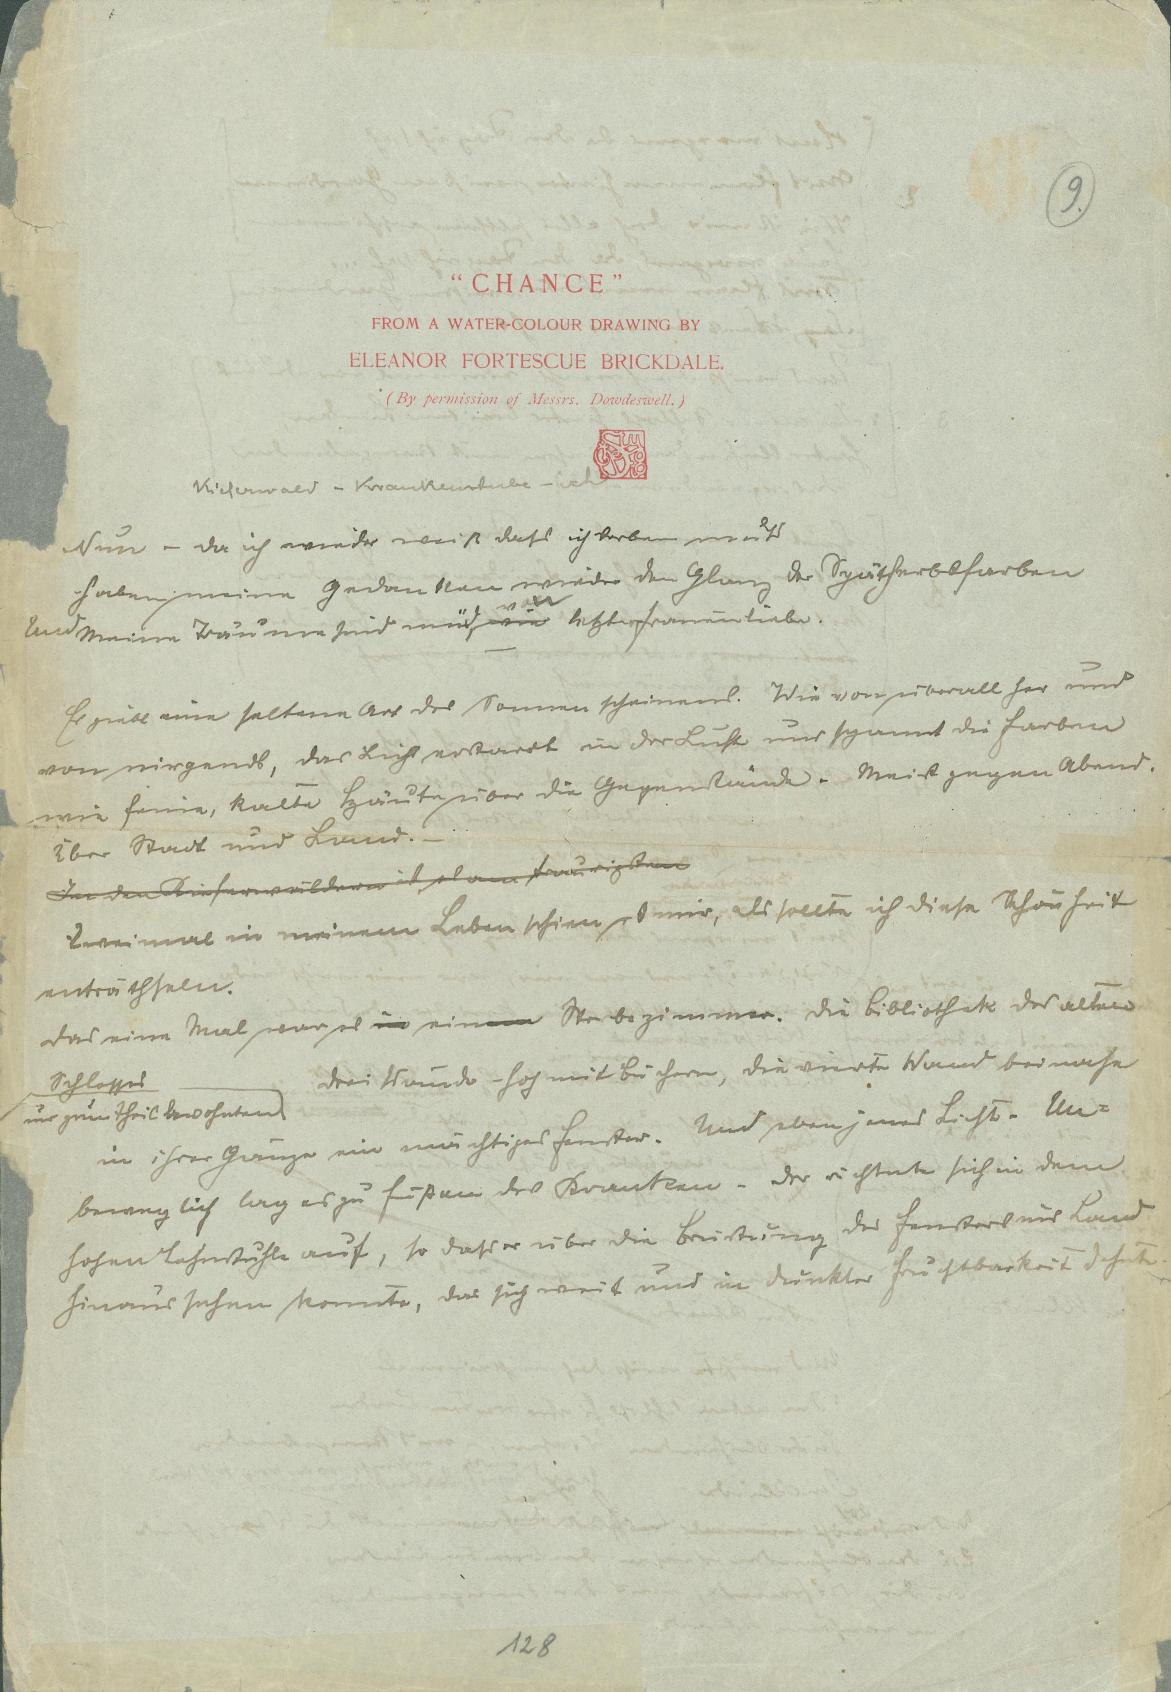 9.
"CHANCE"
FROM A WATER-COLOUR DRAWING BY
ELEANOR FORTESCUE BRICKDALE.
(By permission of Messrs. Dowdeswell.)
Kieferwald – Krankenstube – ich
Nun – da ich wieder weiß dass ich sterben muß
haben meine Gedanken wieder den Glanz der Spätherbstfarben
Und Meine Träume sind müd wie von letzter Frauenliebe.
Es giebt eine seltene Art des Sonnenscheinens. Wie von überall her und
von nirgends, das Licht erstarrt in der Luft und spannt die Farben
wie feine, kalte Häute über die Gegenstände. Meist gegen Abend.
Über Stadt und Land. –
In den Kieferwäldern ist es am traurigsten
Zweimal in meinem Leben schien es mir, als sollte ich diese Schönheit
enträthseln.
Das eine Mal war es in einem Sterbezimmer. Die Bibliothek des alten
Schlosses
nur zum Theil bewohnten
drei Wände hoch mit Büchern, die vierte Wand beinahe
in ihrer Gänze ein mächtiges Fenster. Und eben jenes Licht. Un=
beweglich lag es zu Füßen des Kranken. Der richtete sich in dem
hohen Lehnstuhle auf, so dass er über die Brüstung des Fensters ins Land
hinaus sehen konnte, das sich weit und in dunkler Fruchtbarkeit dehnte.
128